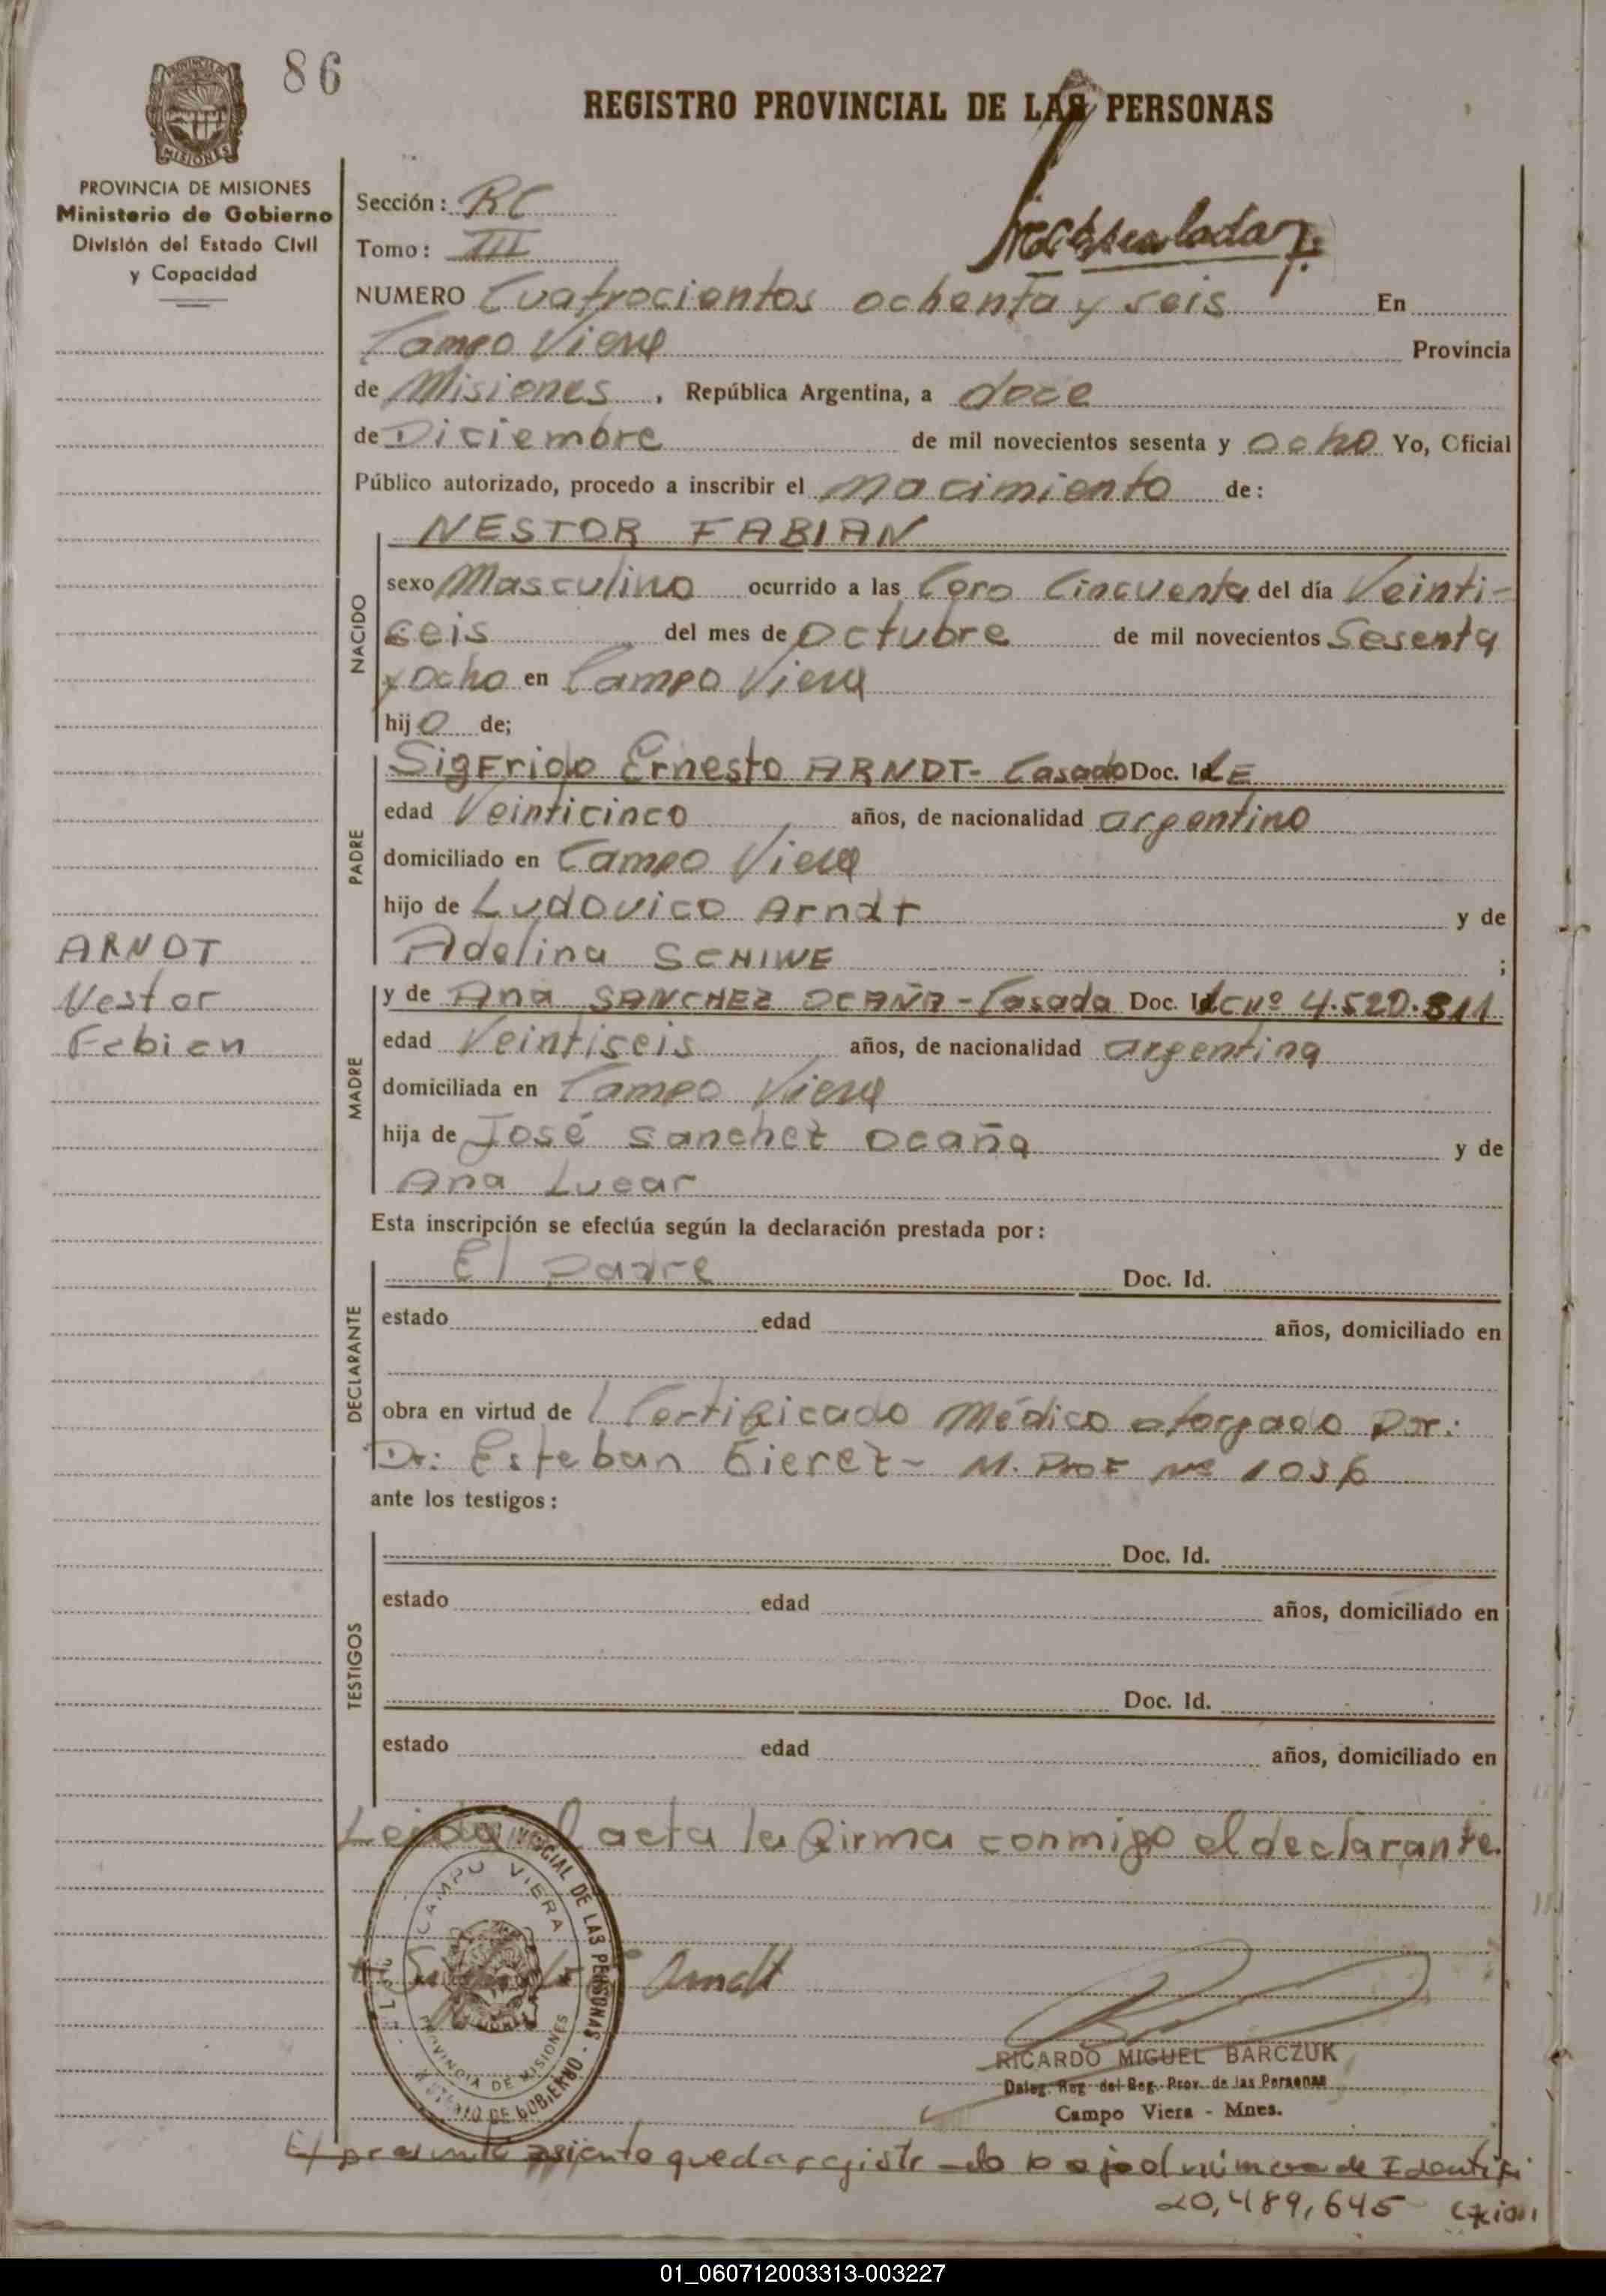 86
REGISTRO PROVINCIAL DE LAS PERSONAS
MISIONES
PROVINCIA DE MISIONES
Ministerio de Gobierno
División del Estado Civil
y Capacidad
Sección: RC
Tomo: III
NUMERO Cuatrocientos ochenta y seis En
Campo Viera Provincia
de Misiones, República Argentina, a doce
de Diciembre de mil novecientos sesenta y ocho Yo, Oficial
Público autorizado, procedo a inscribir el nacimiento de:
NESTOR FABIAN
NACIDO
sexo Masculino ocurrido a las Cero Cincuenta del día Veinti-
seis del mes de Octubre de mil novecientos Sesenta
y Ocho en Campo Viera
hijo de;
PADRE
Sigfrido Ernesto ARNDT- Casado Doc. Id. LE
edad Veinticinco años, de nacionalidad argentino
domiciliado en Campo Viera
hijo de Ludovico Arndt y de
Adelina SCHIWE ;
ARNDT
Nestor
Fabian
MADRE
y de Ana SANCHEZ OCAÑA - Casada Doc. Id. LC nº 4.520.811
edad Veintiseis años, de nacionalidad argentina
domiciliada en Campo Viera
hija de José Sanchez Ocaña y de
Ana Lucar
Esta inscripción se efectúa según la declaración prestada por:
DECLARANTE
El padre Doc. Id.
estado edad años, domiciliado en
obra en virtud de 1 Certificado Médico otorgado por:
Dr: Esteban Gierez - M. Prof Nº 1036
ante los testigos:
TESTIGOS
Doc. Id.
estado edad años, domiciliado en
Doc. Id.
estado edad años, domiciliado en
Leida el acta la firma conmigo el declarante
CAMPO VIERA
PROVINCIA DE MISIONES
DE LAS PERSONAS - DE GOBIERNO
Arndt
RICARDO MIGUEL BARCZUK
Deleg. Reg. del Reg. Prov. de las Personas
Campo Viera - Mnes.
El presente asiento queda registrado bajo el número de Identifi
20,489,645 cación
01_060712003313-003227